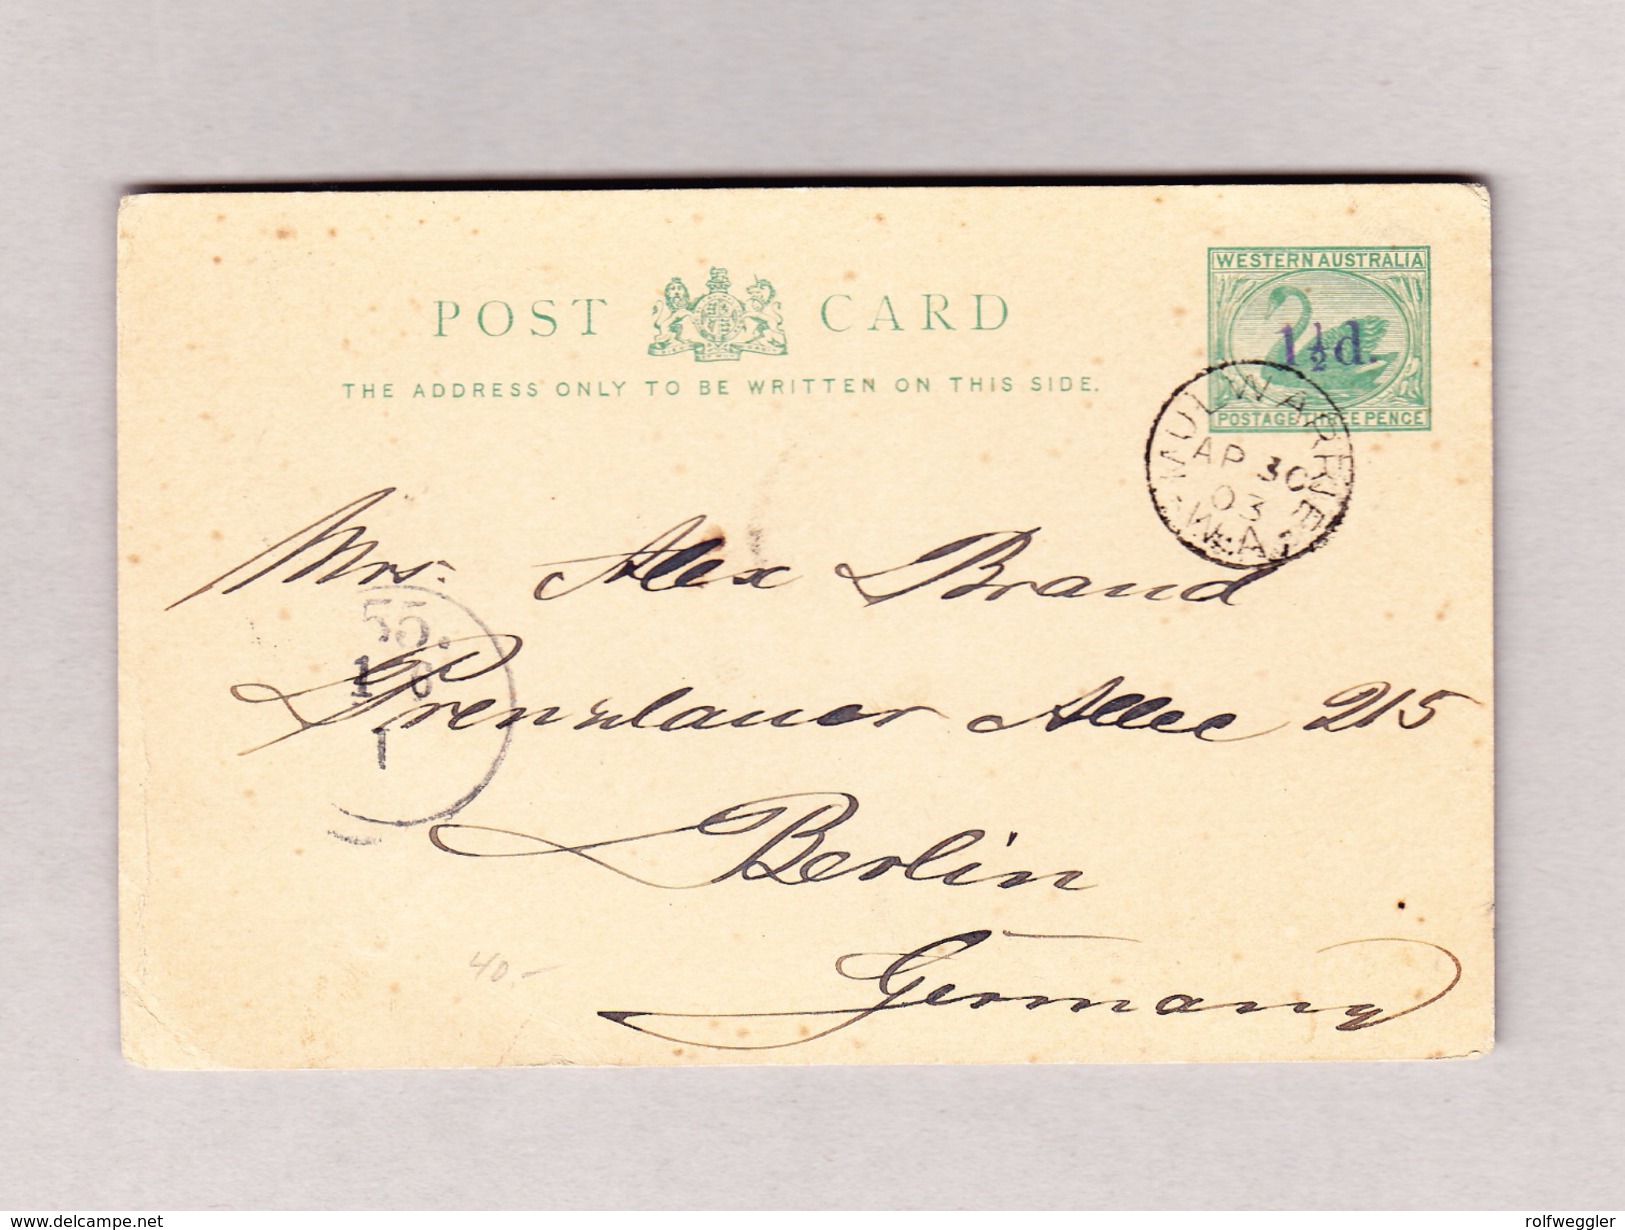 WESTERN AUSTRALIA
POST CARD
1½d.
THE ADDRESS ONLY TO BE WRITTEN ON THIS SIDE.
POSTAGE THREE PENCE
MULWARRIE
AP 30
03
W.A
Mrs. Alex Brand
55.
Prenzlauer Allee 215
1
Berlin
Germany
40.-
delcampe.net
rolfweggler